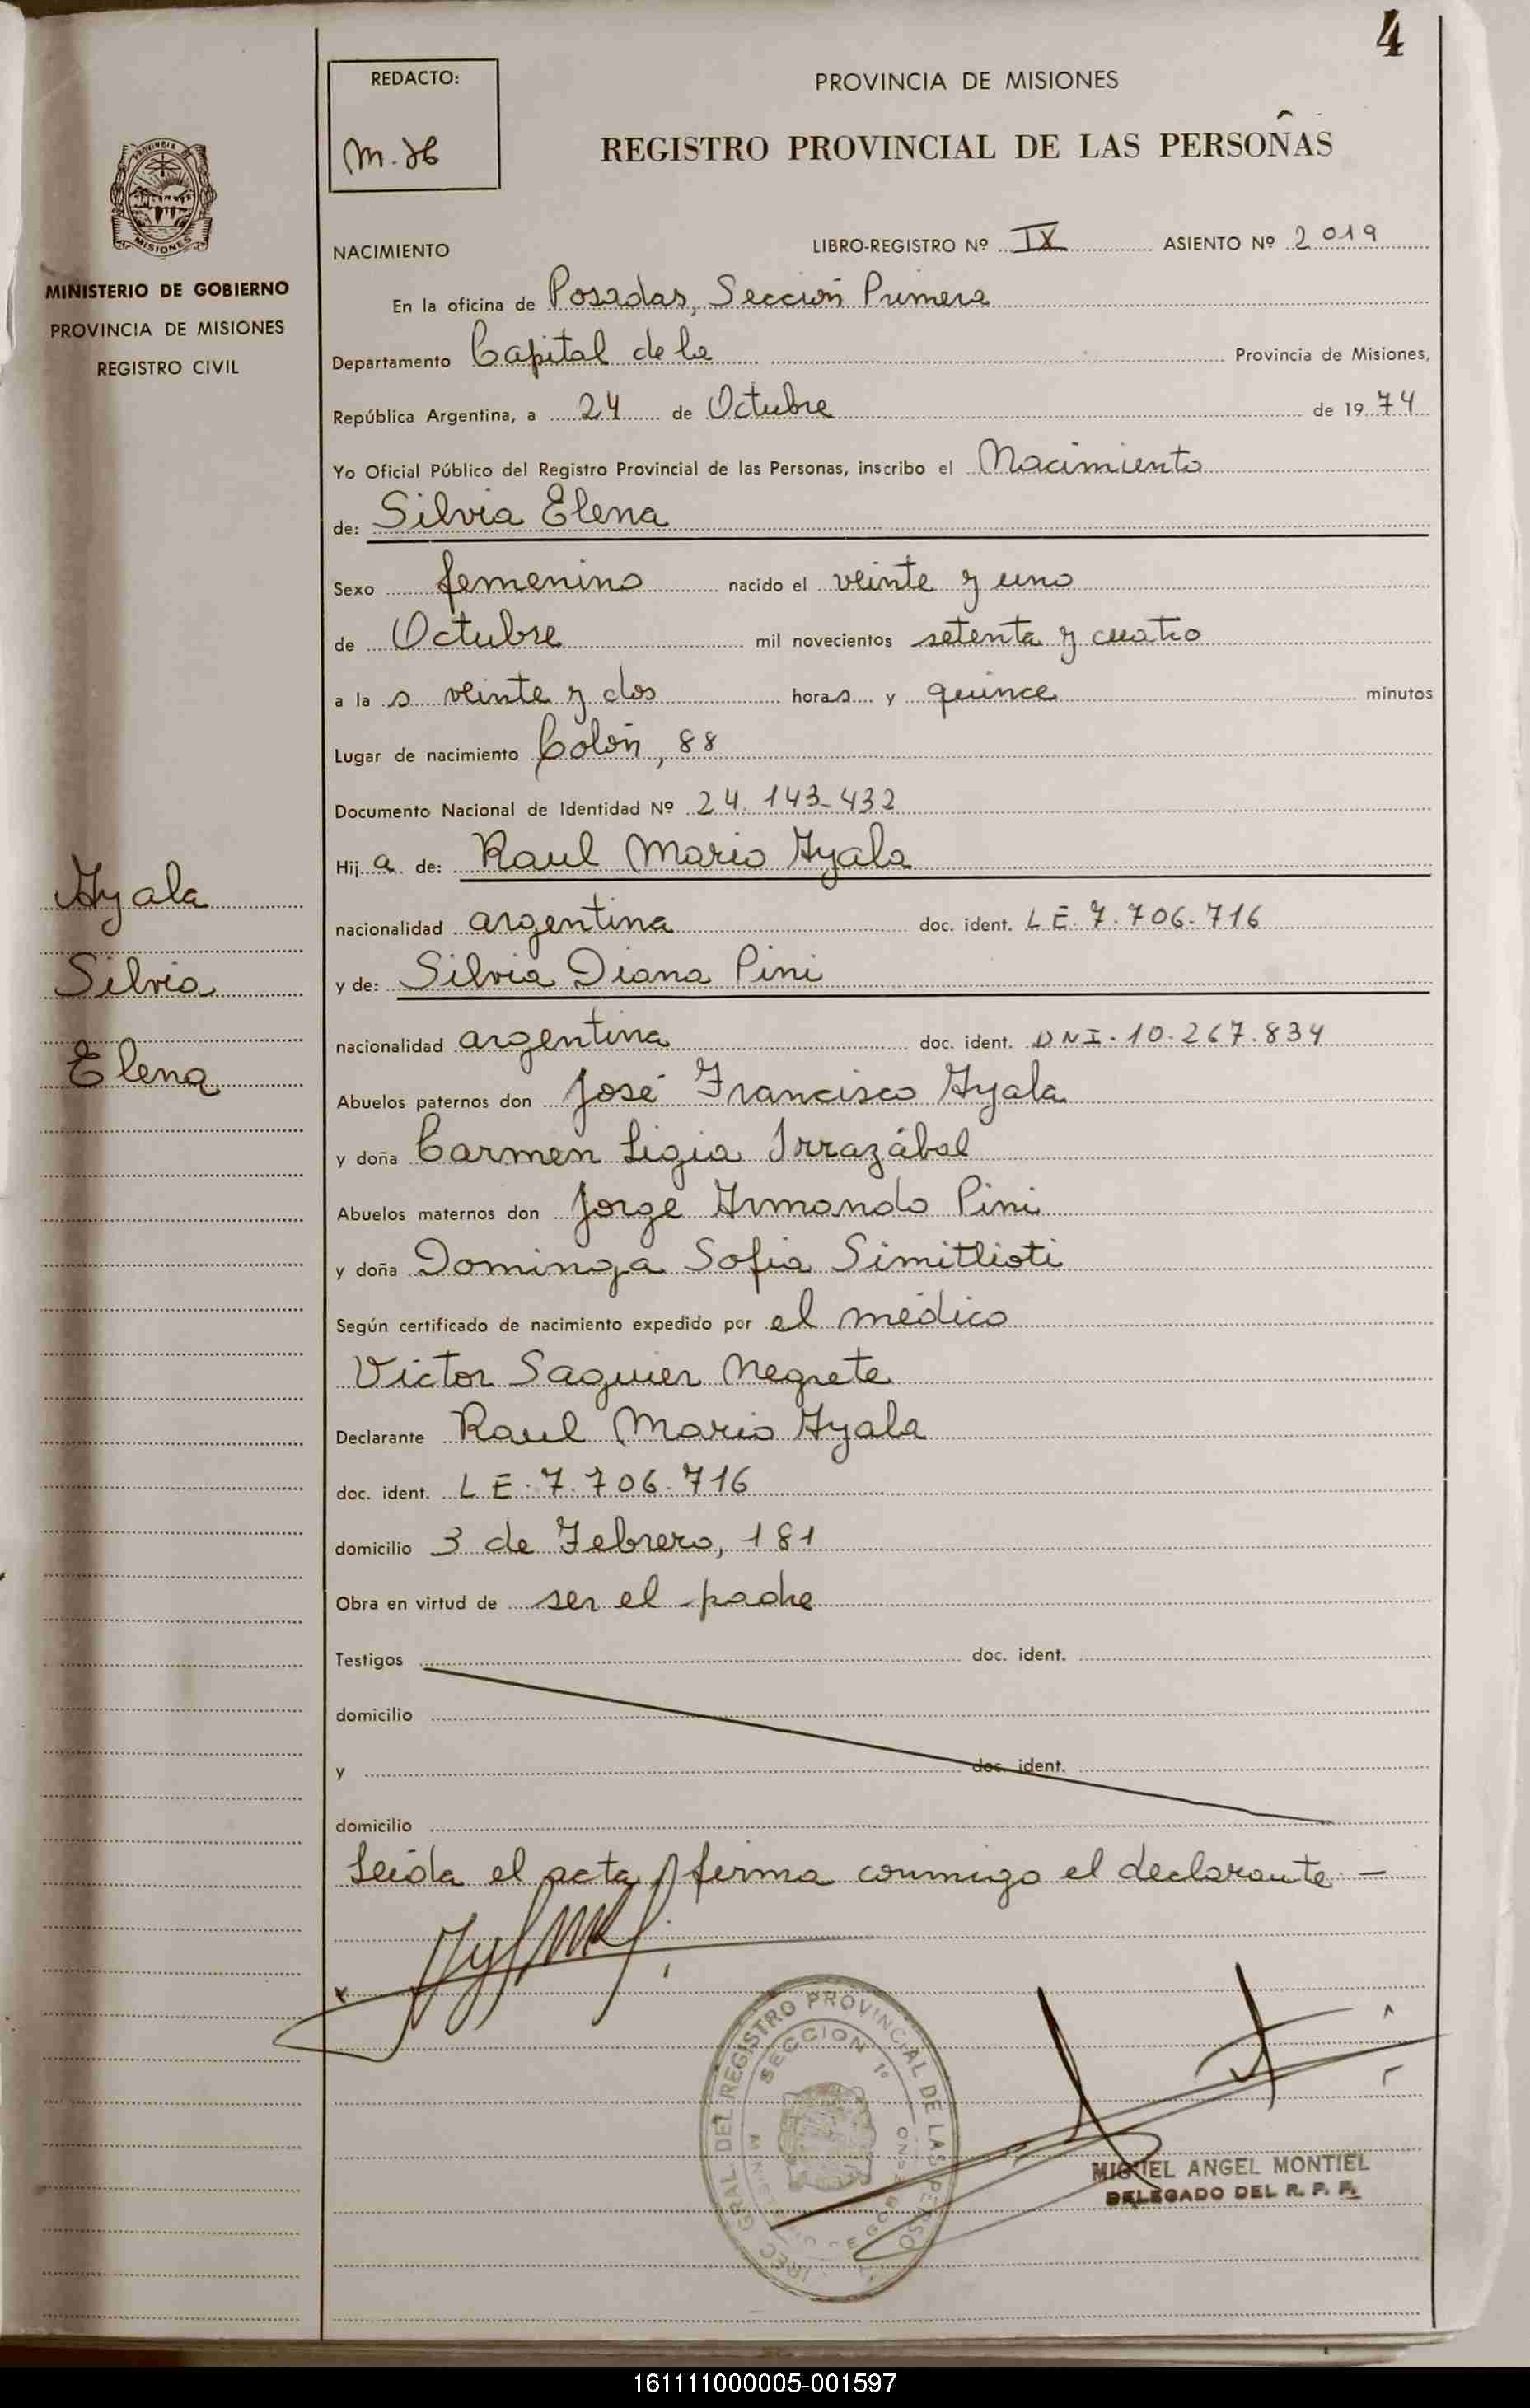 4
REDACTO:
M. H
PROVINCIA DE MISIONES
REGISTRO PROVINCIAL DE LAS PERSONAS
PROVINCIA
MISIONES
MINISTERIO DE GOBIERNO
PROVINCIA DE MISIONES
REGISTRO CIVIL
NACIMIENTO LIBRO-REGISTRO Nº IX ASIENTO Nº 2019
En la oficina de Posadas, Sección Primera
Departamento Capital de la Provincia de Misiones,
República Argentina, a 24 de Octubre de 1974
Yo Oficial Público del Registro Provincial de las Personas, inscribo el Nacimiento
de: Silvia Elena
Sexo femenino nacido el veinte y uno
de Octubre mil novecientos setenta y cuatro
a la s veinte y dos horas y quince minutos
Lugar de nacimiento Colón, 88
Documento Nacional de Identidad Nº 24.143-432
Hija de: Raul Mario Ayala
nacionalidad argentina doc. ident. L E. 7.706.716
y de: Silvia Diana Pini
nacionalidad argentina doc. ident. DNI. 10.267.834
Abuelos paternos don José Francisco Ayala
y doña Carmen Ligia Irrazábal
Abuelos maternos don Jorge Armando Pini
y doña Dominga Sofia Simitlioti
Según certificado de nacimiento expedido por el médico
Victor Saguier Negrete
Declarante Raul Mario Ayala
doc. ident. L E. 7.706.716
domicilio 3 de Febrero, 181
Obra en virtud de ser el padre
Testigos doc. ident.
domicilio
y doc. ident.
domicilio
Leída el acta, firma conmigo el declarante. —
Ayala
Silvia
Elena
GRAL. DEL REGISTRO PROVINCIAL DE LAS PERSO
SECCION 1º
MIGUEL ANGEL MONTIEL
DELEGADO DEL R. P. P.
161111000005-001597